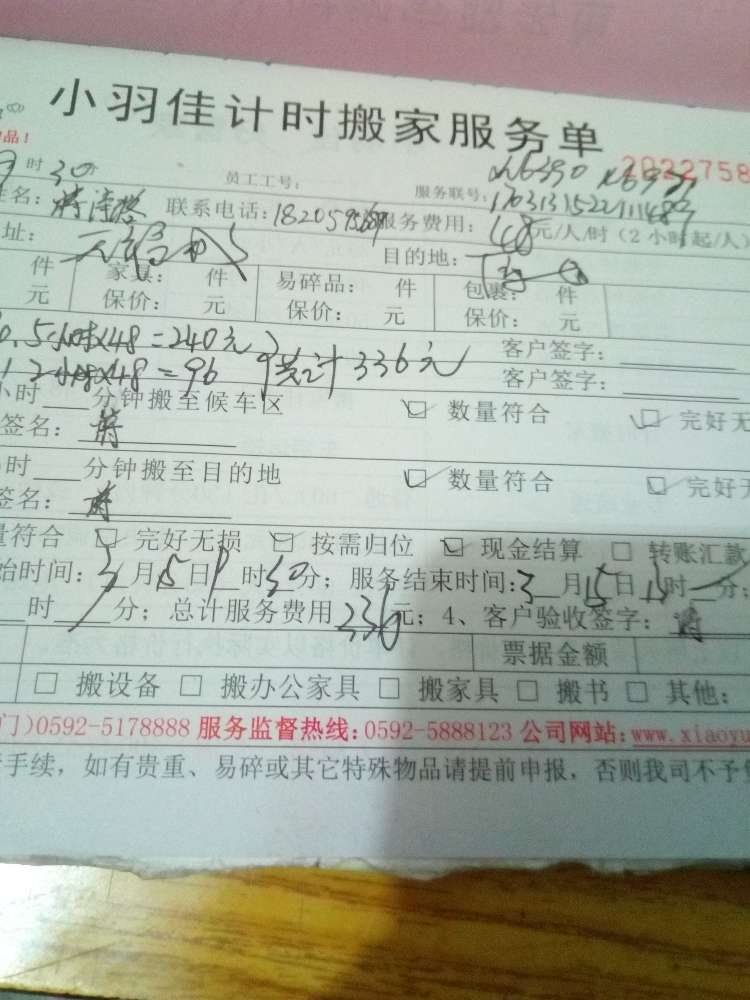 小羽佳计时搬家服务单
品!
2022758
时30分 员工工号: 服务联号:
姓名: 联系电话: 服务费用:48元/人/时(2小时起/人)
址: 目的地:
件 家具: 件 易碎品: 件 包裹: 件
元 保价: 元 保价: 元 保价: 元
.5小时×48=240元 共计336元 客户签字:
2小时×48=96 客户签字:
小时 分钟搬至候车区 数量符合 完好无
签名: 蒋
时 分钟搬至目的地 数量符合 完好无
签名: 蒋
量符合 完好无损 按需归位 现金结算 转账汇款
始时间:3月15日9时30分; 服务结束时间:3月15日13时 分;
时 分; 总计服务费用336元; 4、客户验收签字:蒋
票据金额
搬设备 搬办公家具 搬家具 搬书 其他:
门)0592-5178888 服务监督热线:0592-5888123 公司网站:www.xiaoyu
手续,如有贵重、易碎或其它特殊物品请提前申报,否则我司不予